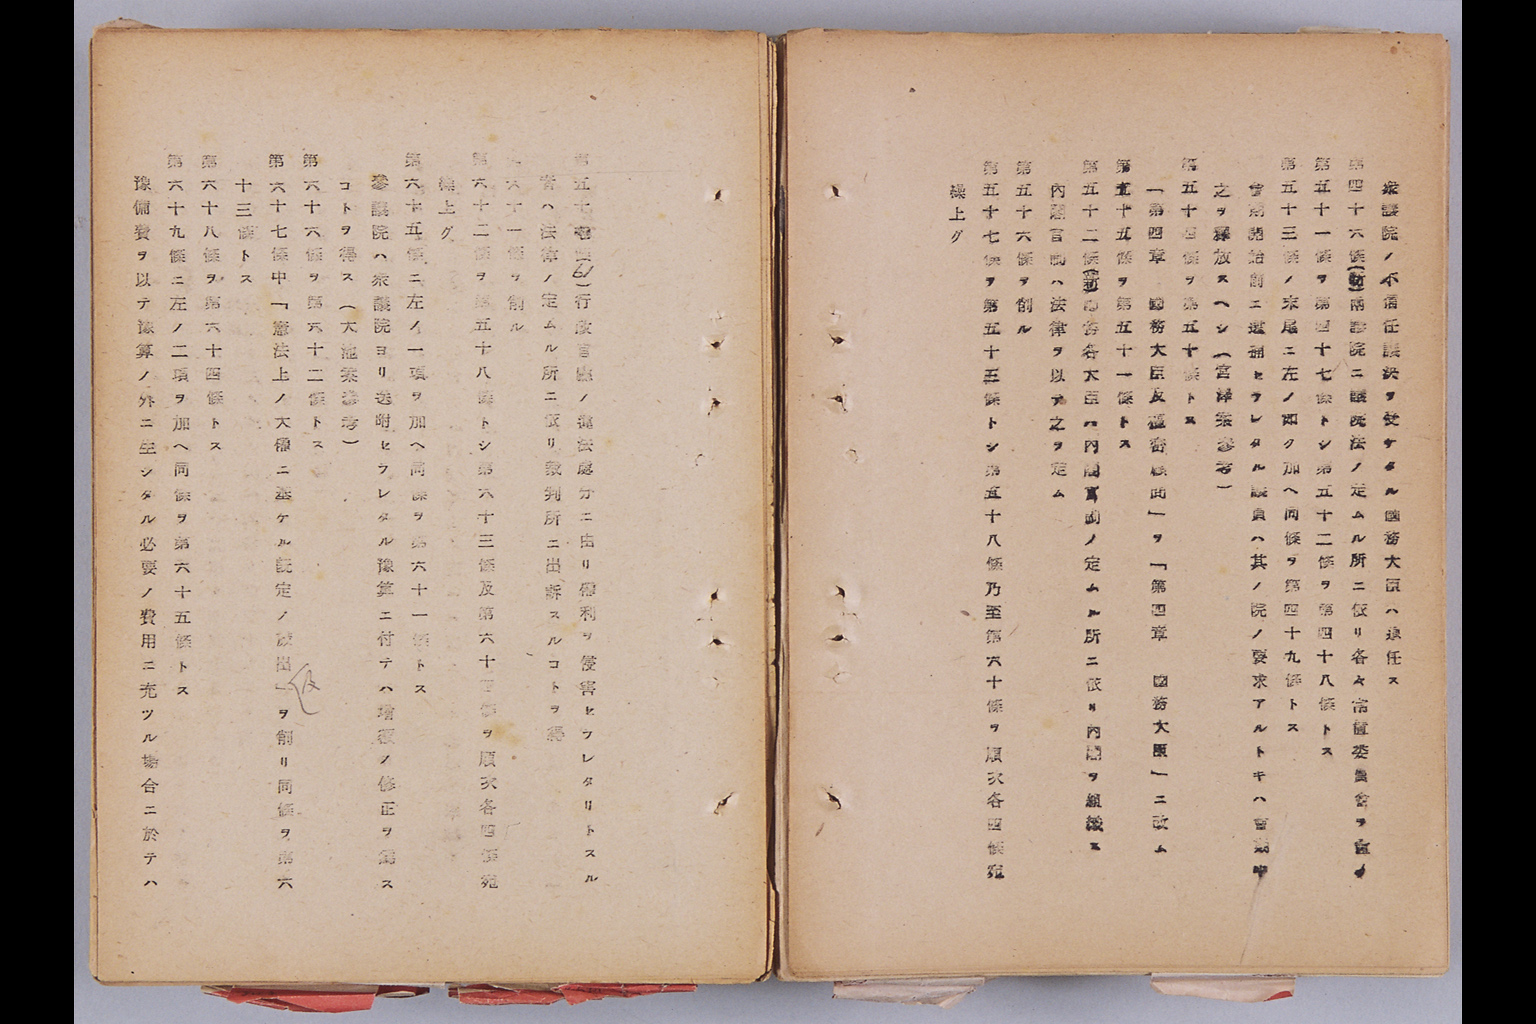 衆議院ノ不信任議決ヲ受ケタル國務大臣ハ連任ス
第四十六條(新)兩議院ニ議院法ノ定ムル所ニ依リ各々常置委員會ヲ置ク
第五十一條ヲ第四十七條トシ第五十二條ヲ第四十八條トス
第五十三條ノ末尾ニ左ノ如ク加ヘ同條ヲ第四十九條トス
會期開始前ニ逮捕セラレタル議員ハ其ノ院ノ要求アルトキハ會期中
之ヲ釋放スヘシ(宮澤案參考)
第五十四條ヲ第五十條トス
「第四章 國務大臣及樞密顧問」ヲ「第四章 國務大臣」ニ改ム
第五十五條ヲ第五十一條トス
第五十二條(新)國務各大臣ハ內閣官制ノ定ムル所ニ依リ內閣ヲ組織ス
內閣官制ハ法律ヲ以テ之ヲ定ム
第五十六條ヲ削ル
第五十七條ヲ第五十三條トシ第五十八條乃至第六十條ヲ順次各四條宛
繰上グ
第五十七條 61)行政官廳ノ違法處分ニ由リ權利ヲ侵害セラレタリトスル
者ハ法律ノ定ムル所ニ依リ裁判所ニ出訴スルコトヲ得
六十一條ヲ削ル
第六十二條ヲ第五十八條トシ第六十三條及第六十四條ヲ順次各四條宛
繰上グ
第六十五條ニ左ノ一項ヲ加ヘ同條ヲ第六十一條トス
參議院ハ衆議院ヨリ送附セラレタル豫算ニ付テハ增額ノ修正ヲ爲ス
コトヲ得ス(大池案參考)
第六十六條ヲ第六十二條トス
第六十七條中「憲法上ノ大權ニ基ケル既定ノ歲出」ヲ削リ同條ヲ第六
十三條トス
第六十八條ヲ第六十四條トス
第六十九條ニ左ノ二項ヲ加ヘ同條ヲ第六十五條トス
豫備費ヲ以テ豫算ノ外ニ生シタル必要ノ費用ニ充ツル場合ニ於テハ